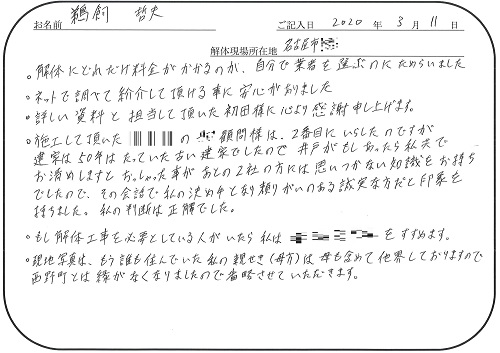 お名前 鵜飼 哲夫 ご記入日 2020 年 3 月 11 日
解体現場所在地 名古屋市
。解体にどれだけ料金がかかるのか、自分で業者を選ぶのにためらいました
。ネットで調べて紹介して頂ける事に安心がありました
。詳しい資料と担当して頂いた初田様に心より感謝申し上げます。
。施工して頂いた の 顧問様は、2番目にいらしたのですが
建家は50年はたっていた古い建家でしたので 井戸がもしあったら私夫で
お清めしますと おっしゃった事が あとの2社の方には思いつかない知識をお持ち
でしたので、その会話で私の決め手となり頼りがいのある誠実な方だと印象を
持ちました。私の判断は正解でした。
。もし解体工事を必要としている人がいたら私は をすすめます。
。現地写真は、もう誰も住んでいた私の親せき(母方)は母も含めて他界しておりますので
西野町とは縁がなくなりましたので省略させていただきます。